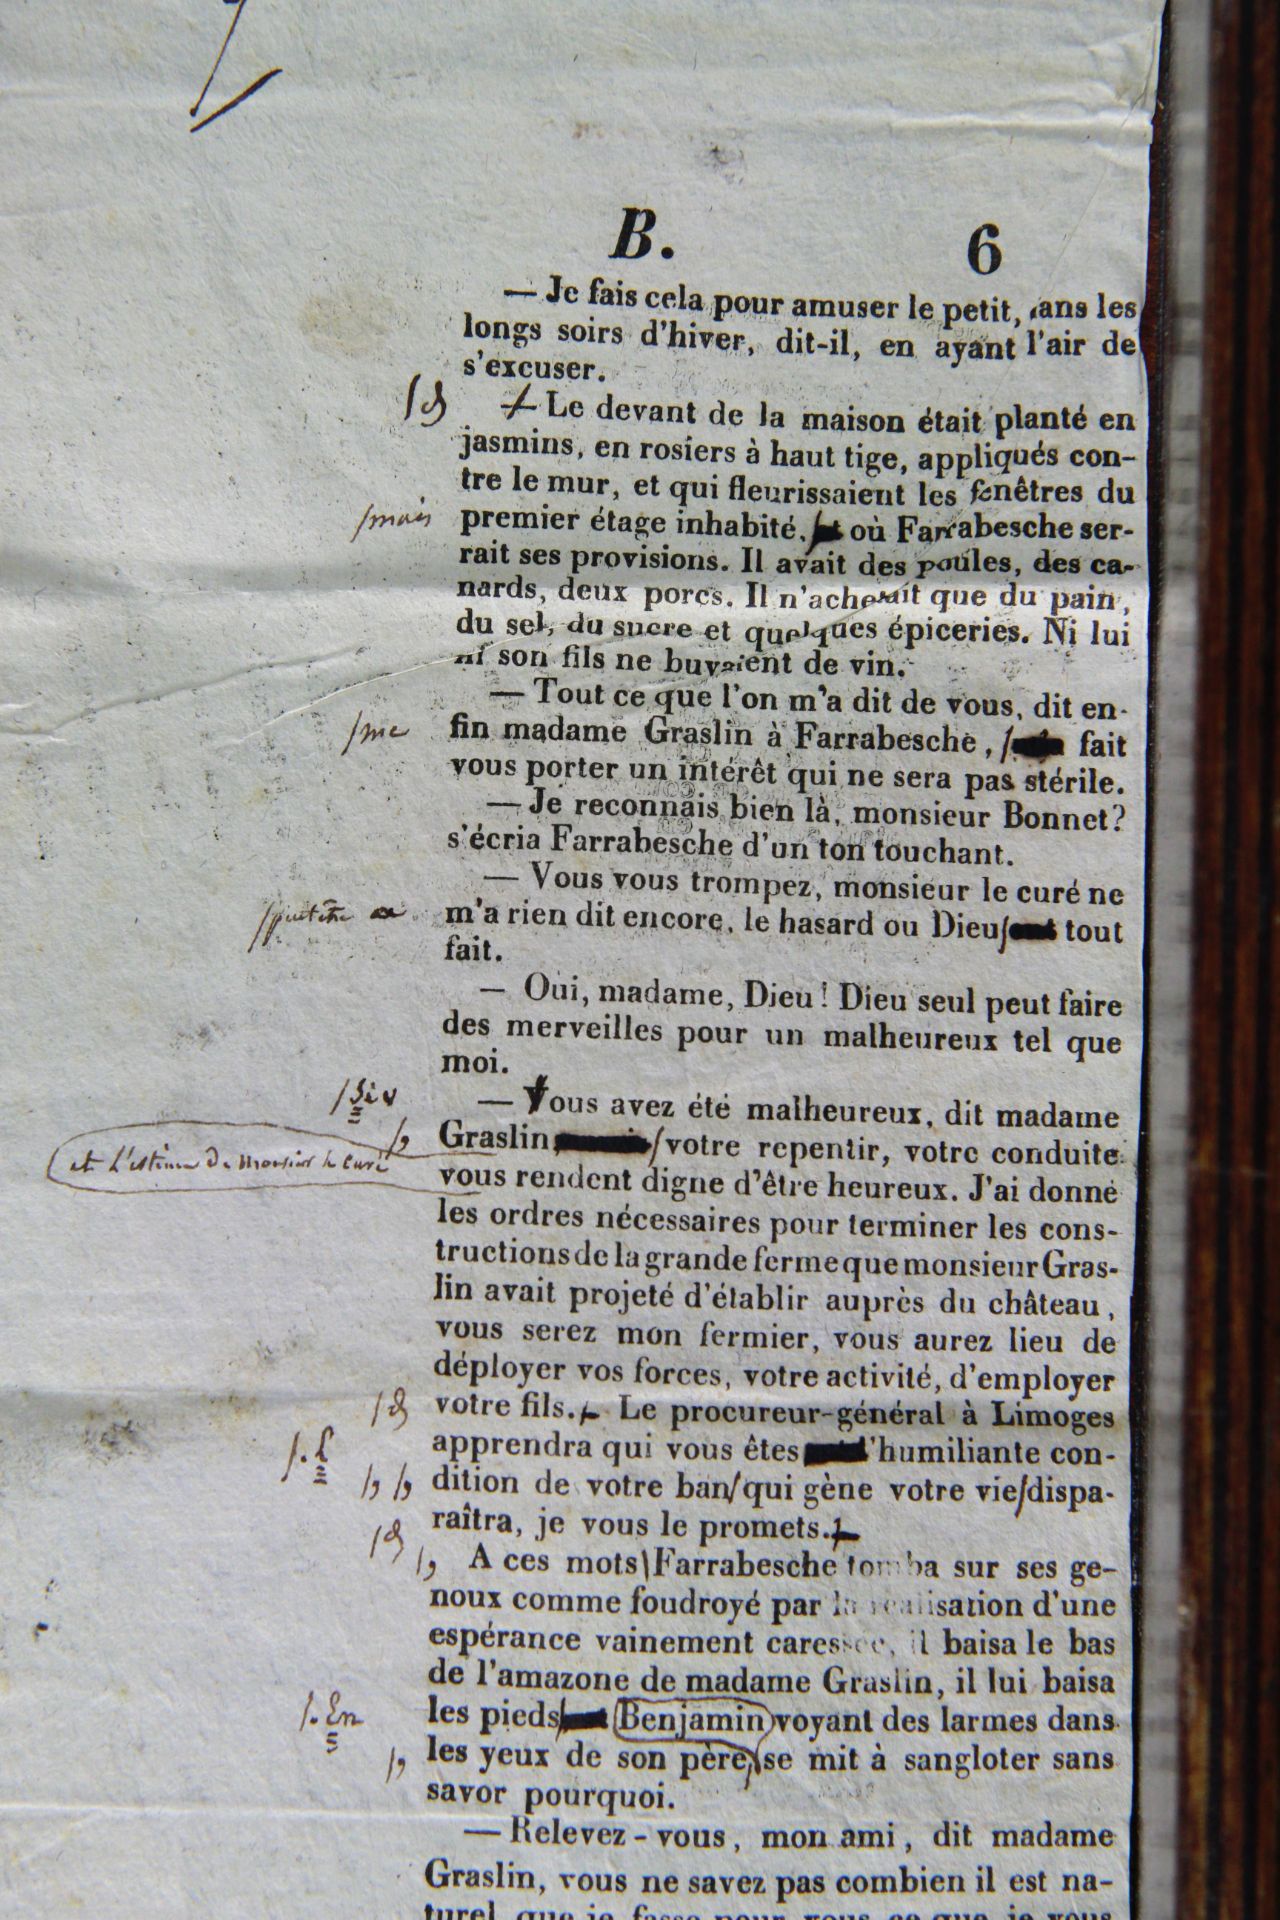 B. 6
— Je fais cela pour amuser le petit, dans les
longs soirs d'hiver, dit-il, en ayant l'air de
s'excuser.
— Le devant de la maison était planté en
jasmins, en rosiers à haut tige, appliqués con-
tre le mur, et qui fleurissaient les fenêtres du
/mais premier étage inhabité, où Farrabesche ser-
rait ses provisions. Il avait des poules, des ca-
nards, deux porcs. Il n'achetait que du pain,
du sel, du sucre et quelques épiceries. Ni lui
ni son fils ne buvaient de vin.
— Tout ce que l'on m'a dit de vous, dit en-
/me fin madame Graslin à Farrabesche, / fait
vous porter un intérêt qui ne sera pas stérile.
— Je reconnais bien là, monsieur Bonnet?
s'écria Farrabesche d'un ton touchant.
— Vous vous trompez, monsieur le curé ne
/peut-être a m'a rien dit encore, le hasard ou Dieu/ tout
fait.
— Oui, madame, Dieu! Dieu seul peut faire
des merveilles pour un malheureux tel que
moi.
/Si v — Vous avez été malheureux, dit madame
/, Graslin / votre repentir, votre conduite
et l'estime de Monsieur le curé vous rendent digne d'être heureux. J'ai donné
les ordres nécessaires pour terminer les cons-
tructions de la grande ferme que monsieur Gras-
lin avait projeté d'établir auprès du château,
vous serez mon fermier, vous aurez lieu de
déployer vos forces, votre activité, d'employer
votre fils. Le procureur-général à Limoges
/. L apprendra qui vous êtes l'humiliante con-
/, /, dition de votre ban/qui gène votre vie/dispa-
raîtra, je vous le promets.
/, A ces mots\Farrabesche tomba sur ses ge-
noux comme foudroyé par la réalisation d'une
espérance vainement caressée, il baisa le bas
de l'amazone de madame Graslin, il lui baisa
/. En les pieds Benjamin voyant des larmes dans
/, les yeux de son père, se mit à sangloter sans
savor pourquoi.
— Relevez-vous, mon ami, dit madame
Graslin, vous ne savez pas combien il est na-
turel que je fasse pour vous ce que je vous